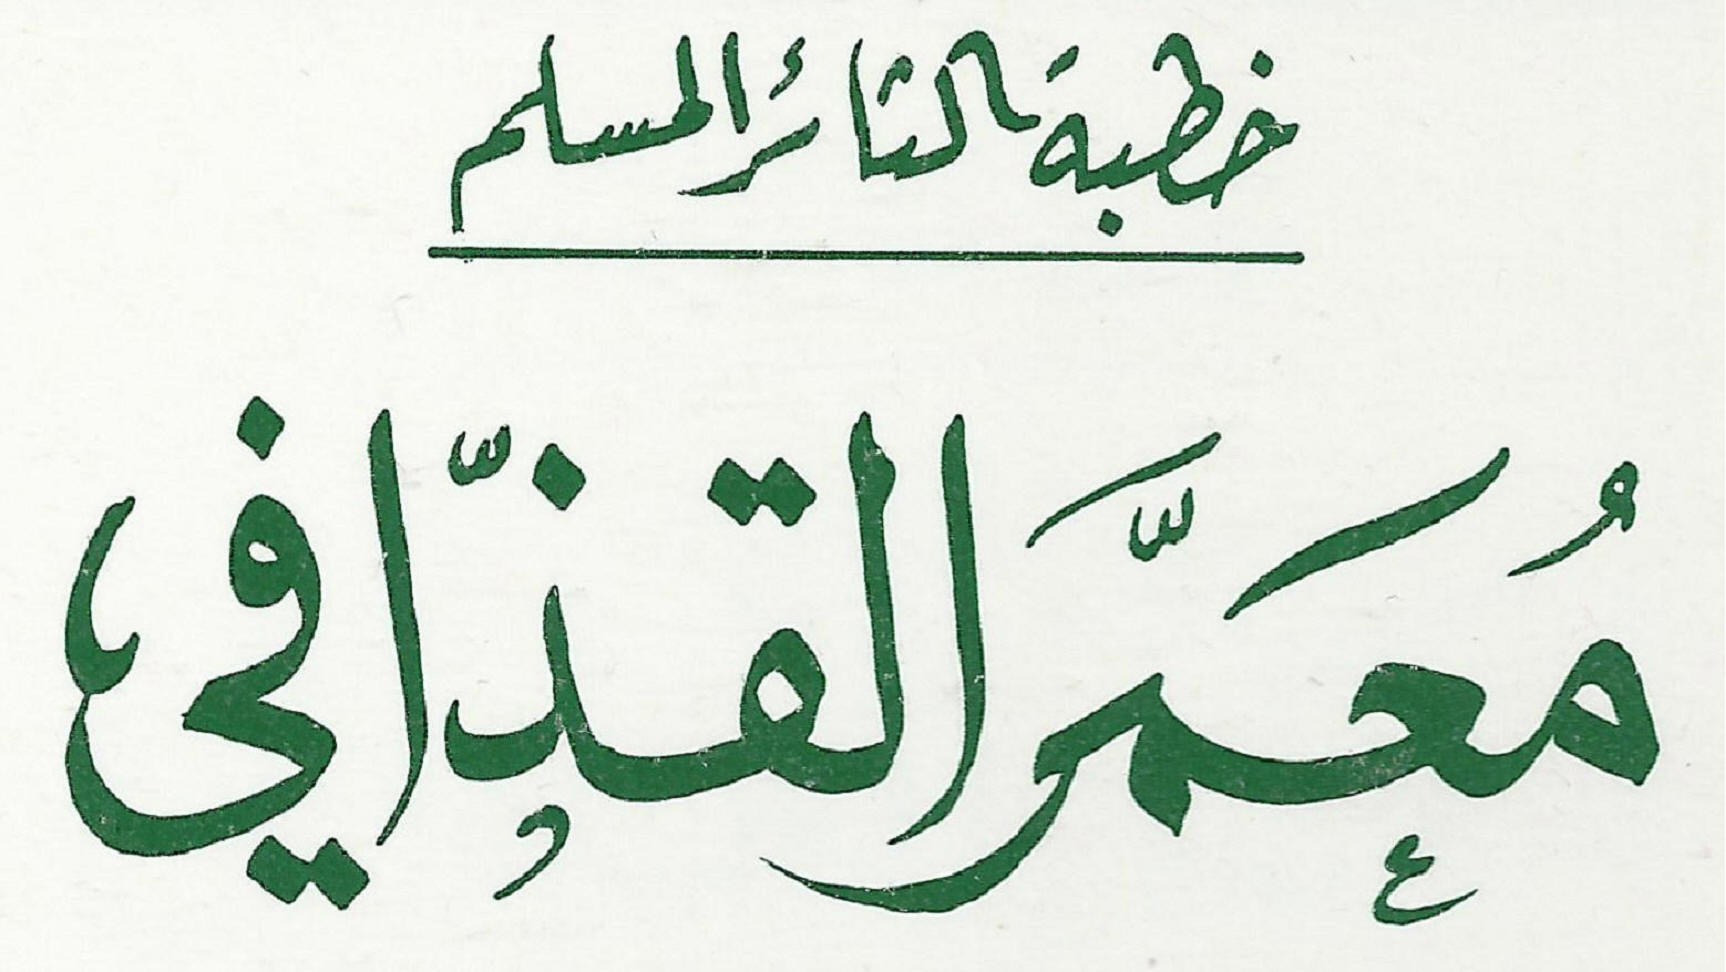 خطبة الثائر المسلم
مُعَمَّر القذّافي